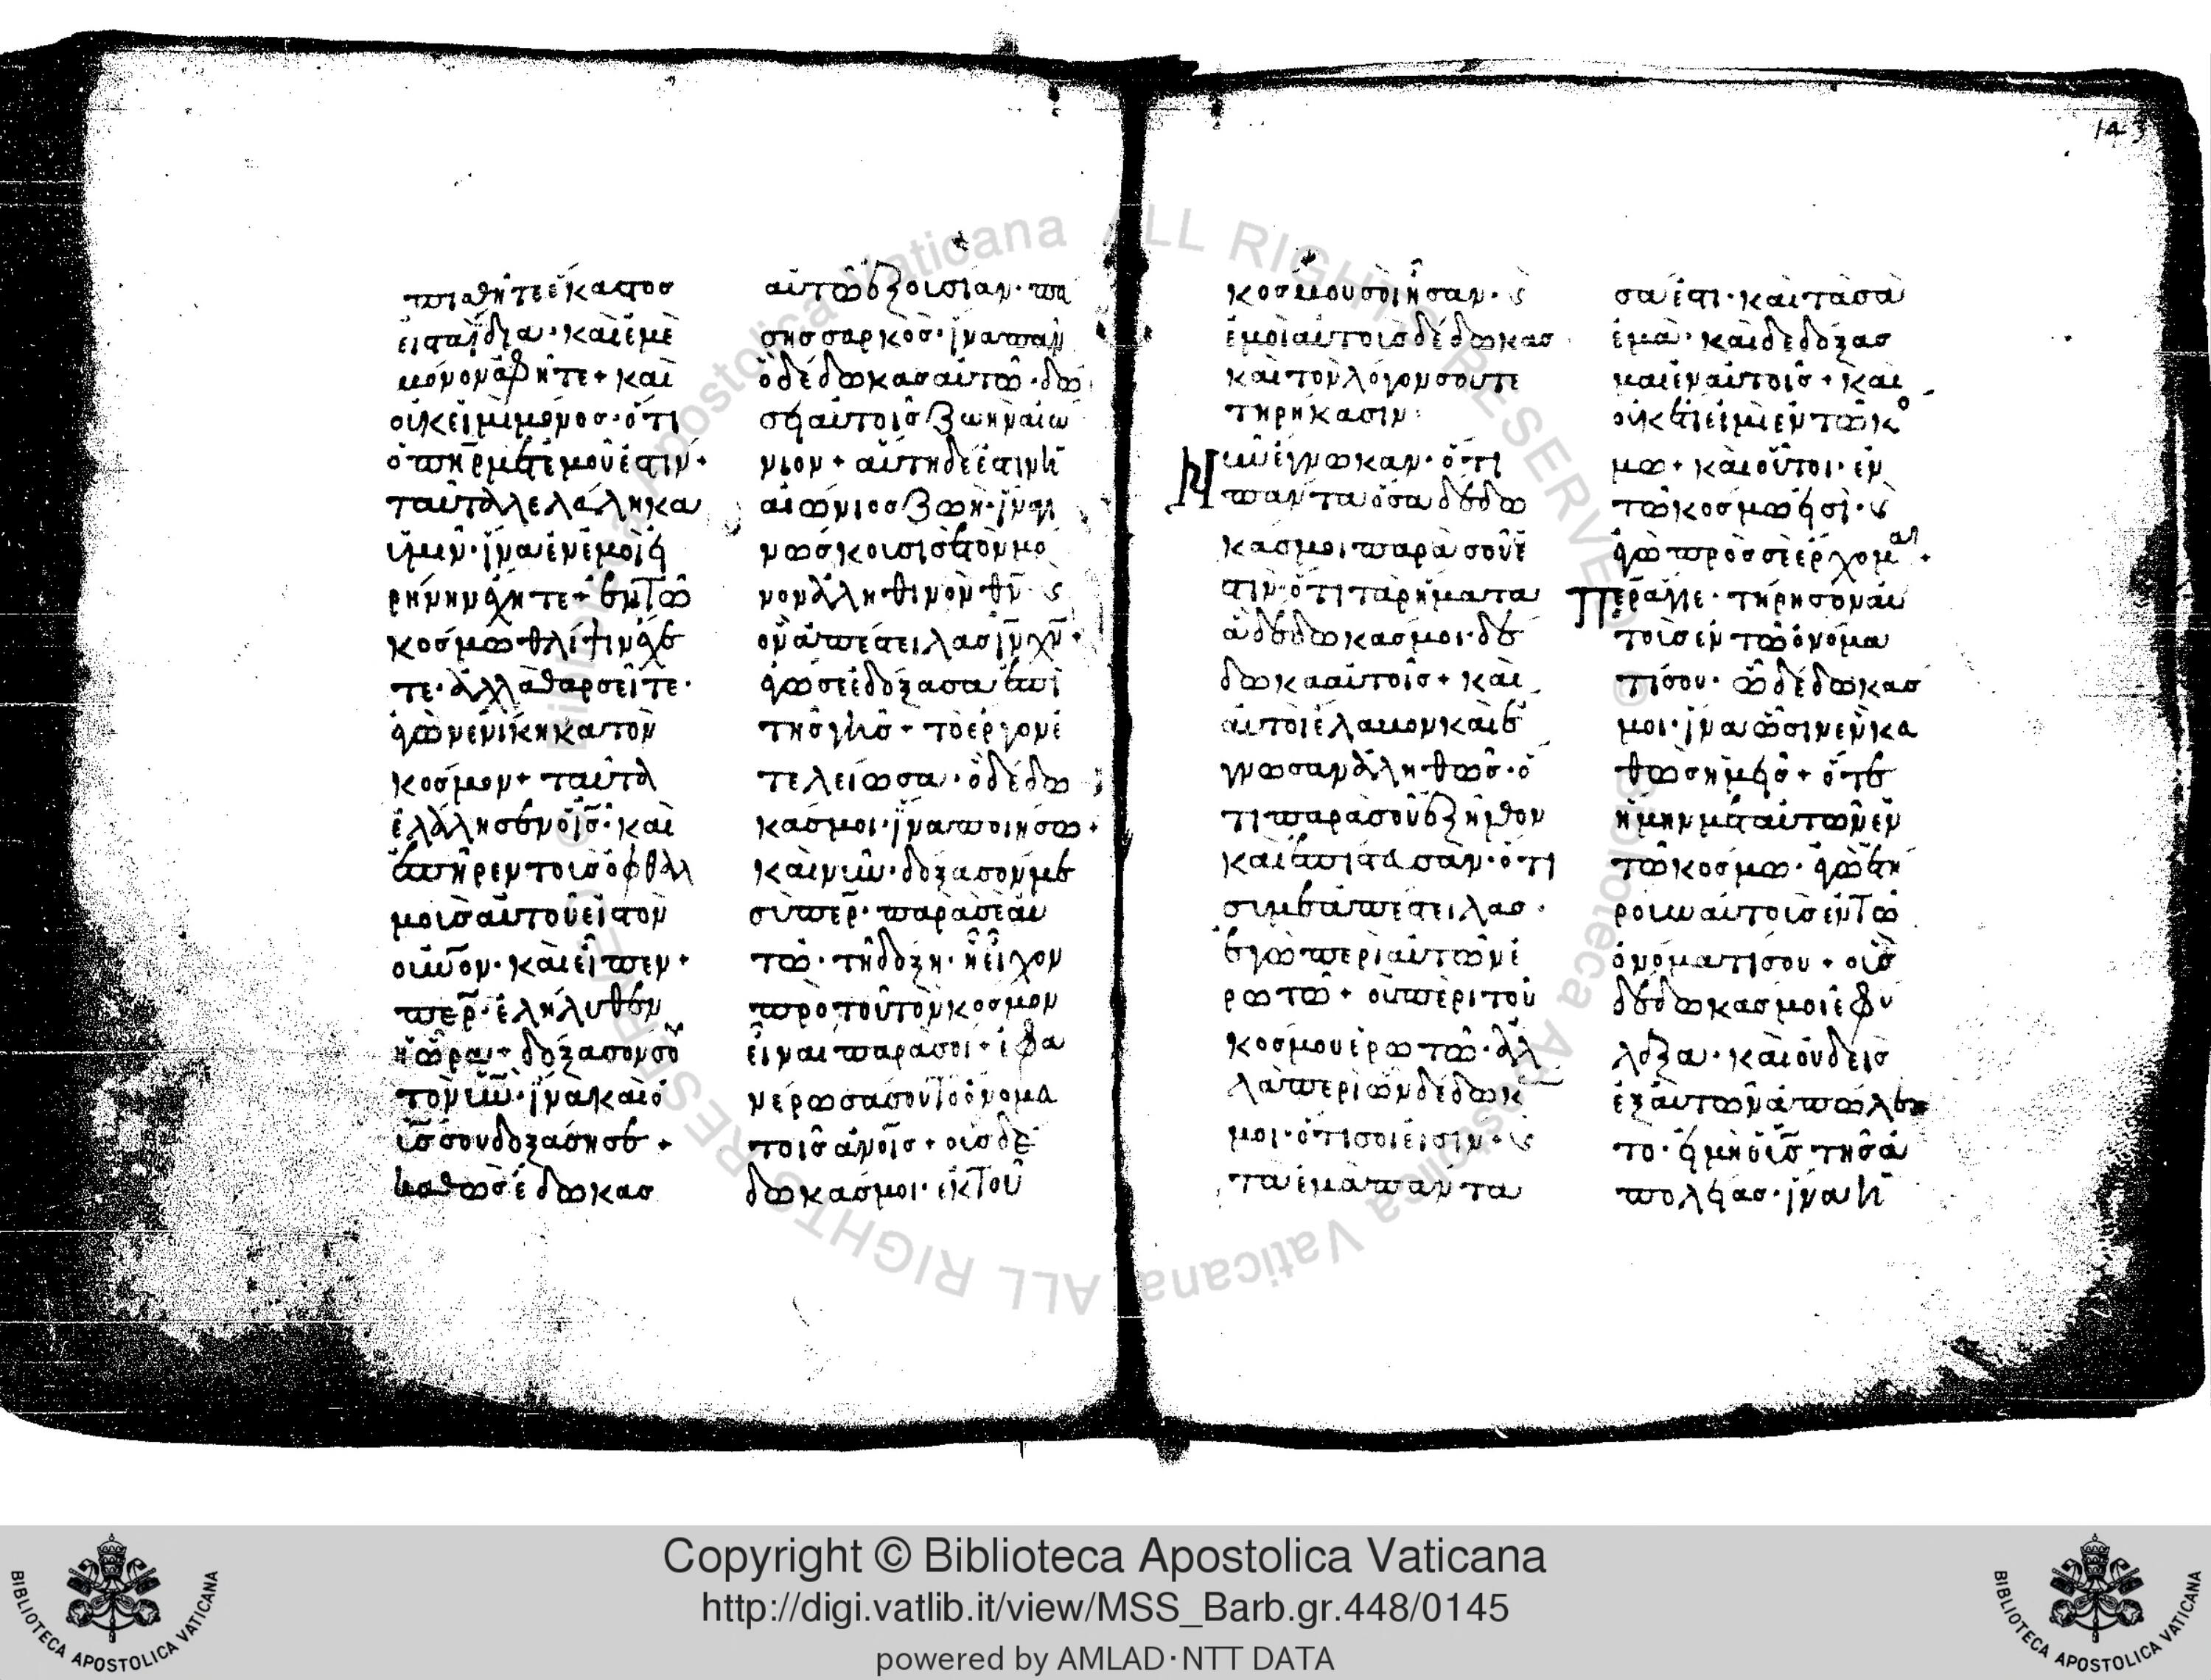 πισθῆτε ἕκαστοσ
εἰσ τα ἴδια· καὶ ἐμὲ
μόνον ἀφῆτε+ καὶ
οὐκ εἰμὶ μόνοσ· ὅτι
ὁ πηρ μετ ἐμοῦ ἐστιν+
ταῦτα λελάληκα
ὑμῖν· ἵνα ἐν ἐμοὶ εἰ
ρήνην ἔχητε+ ἐν τῶ
κοσμω θλίψιν ἔχε
τε· ἀλλὰ θαρσεῖτε·
ἐγὼ νενίκηκα τὸν
κοσμον+ ταῦτα
ἐλάλησεν ὁ ισ· καὶ
ἐπῆρεν τοισ ὀφθαλ
μοισ αὐτοῦ εἰσ τὸν
οὐνον· καὶ εἶπεν+
περ· ἐλήλυθεν
ἡ ὥρα+ δοξασον σου
τὸν υν· ἵνα καὶ ὁ
υσ σου δοξάσησε+
καθὼσ ἔδωκασ
αὐτῶ ἐξουσίαν· πα
σησ σαρκὸσ· ἵνα παν
ὃ δέδωκασ αὐτῶ· δώ
σει αὐτοῖσ ζωὴν αἰώ
νιον+ αὕτη δέ ἐστιν ἡ
αἰώνιοσ ζωὴ· ἵνα γι
νώσκουσι σὲ τὸν μό
νον ἀληθινὸν θν· κ
ὃν ἀπέστειλασ ιν χν+
ἐγώ σε ἐδόξασα ἐπὶ
τῆσ γῆσ+ τὸ ἔργον ἐ
τελείωσα· ὃ δέδω
κάσ μοι· ἵνα ποιήσω+
καὶ νῦν· δοξασόν με
σὺ περ· παρὰ σεαυ
τῶ· τῆ δόξη· ἧ εἶχον
προ τοῦ τὸν κοσμον
εἶναι παρὰ σοι+ ἐφα
νέρωσά σου τὸ ὄνομα
τοῖσ ανοισ+ οὓσ δέ
δωκάσ μοι· ἐκ τοῦ
143
κοσμου σοὶ ἦσαν· κ
ἐμοὶ αὐτοὺσ δέδωκασ
καὶ τὸν λόγον σου τε
τηρήκασιν:
Νῦν ἔγνωκαν· ὅτι
παντα ὅσα δεδω
κασ μοι παρὰ σοῦ ἐ
στιν· ὅτι τὰ ρήματα
ἃ δεδωκασ μοι· δε
δωκα αὐτοῖσ+ καὶ
αὐτοὶ ἔλαβον καὶ ἐ
γνωσαν ἀληθῶσ· ὅ
τι παρὰ σοῦ ἐξῆλθον
καὶ ἐπίστευσαν· ὅτι
σύ με ἀπέστειλασ·
ἐγὼ περὶ αὐτῶν ἐ
ρωτῶ+ οὐ περὶ τοῦ
κόσμου ἐρωτῶ· ἀλ
λὰ περὶ ὧν δέδωκ
μοι· ὅτι σοί εἰσιν+ κ
τὰ ἐμὰ παντα
σά ἐστι· καὶ τὰ σὰ
ἐμὰ· καὶ δεδόξασ
μαι ἐν αὐτοῖσ+ καὶ
οὐκ ἔτι εἰμὶ ἐν τῶ κο
μω+ καὶ οὗτοι· ἐν
τῶ κοσμω εἰσὶ· κ
ἐγὼ πρόσ σὲ ἔρχομαι+
Περ ἅγιε· τήρησον αυ
τοὺσ ἐν τῶ ὀνόμα
τί σου· ὧ δέδωκασ
μοι· ἵνα ὦσιν ἓν κα
θὼσ ἡμεῖσ+ ὅτε
ἤμην μετ αὐτῶν ἐν
τῶ κοσμω· ἐγὼ ἐτή
ρουν αὐτοὺσ ἐν τῶ
ὀνόματί σου+ οὓσ
δεδωκασ μοι ἐφύ
λαξα· καὶ οὐδεὶσ
ἐξ αὐτῶν ἀπώλε
το· εἰ μὴ ὁ υσ τῆσ ἀ
πολείασ· ἵνα ἡ
Copyright © Biblioteca Apostolica Vaticana
http://digi.vatlib.it/view/MSS_Barb.gr.448/0145
powered by AMLAD·NTT DATA
BIBLIOTECA APOSTOLICA VATICANA
BIBLIOTECA APOSTOLICA VATICANA